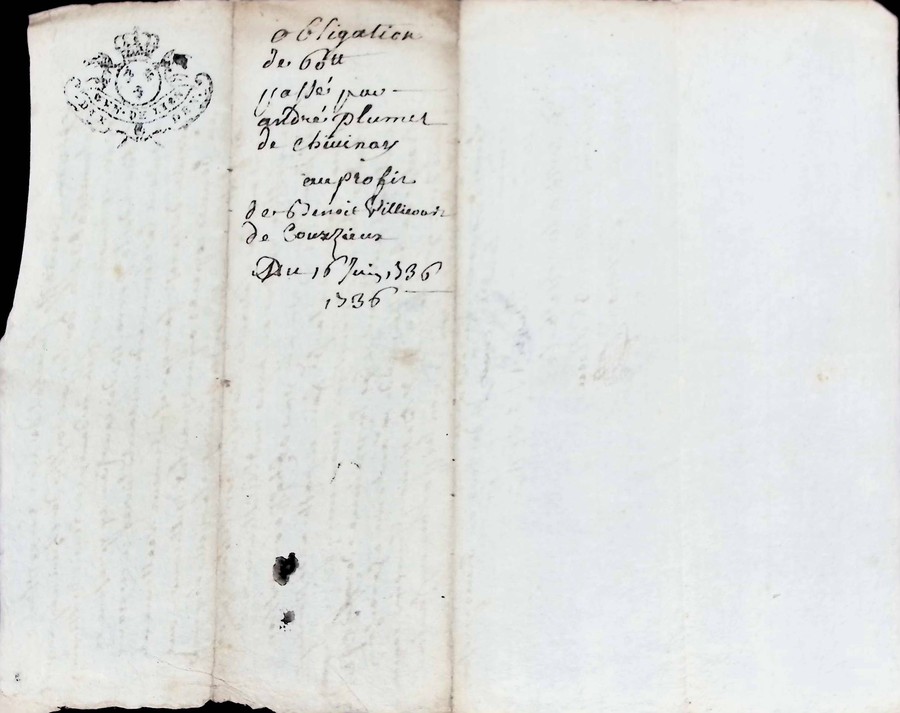 GEN. DE LION
obligation
de 60tt
passé par
andré plumet
de chivinay
au profit
de Benoit Villicourt
de Courzieux
Du 16 Juin 1736
1736